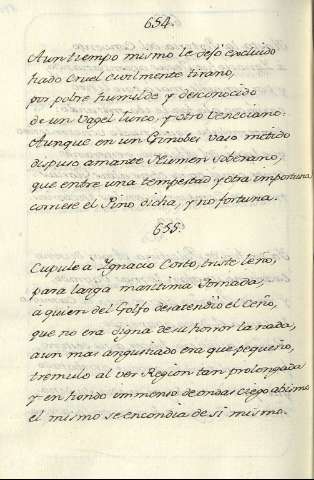 654.
A un tiempo mismo le dejó excluido
hado cruel civilmente tirano,
por pobre humilde y desconocido
de un Vagel turco, y otro Veneciano:
Aunque en un Ginobes vaso metido
dispuso amante Numen soberano,
que entre una tempestad y otra importuna
corriese el Pino dicha, y no fortuna.
655.
Cupule à Ignacio Corto, triste leño,
para larga maritima Jornada,
a quien del Golfo desatendió el Ceño,
que no era digna de su horror la nada,
aun mas angustiado era que pequeño,
tremulo al ver Region tan prolongada
y en hondo immenso de ondas ciego abismo
el mismo se encondia de si mismo.